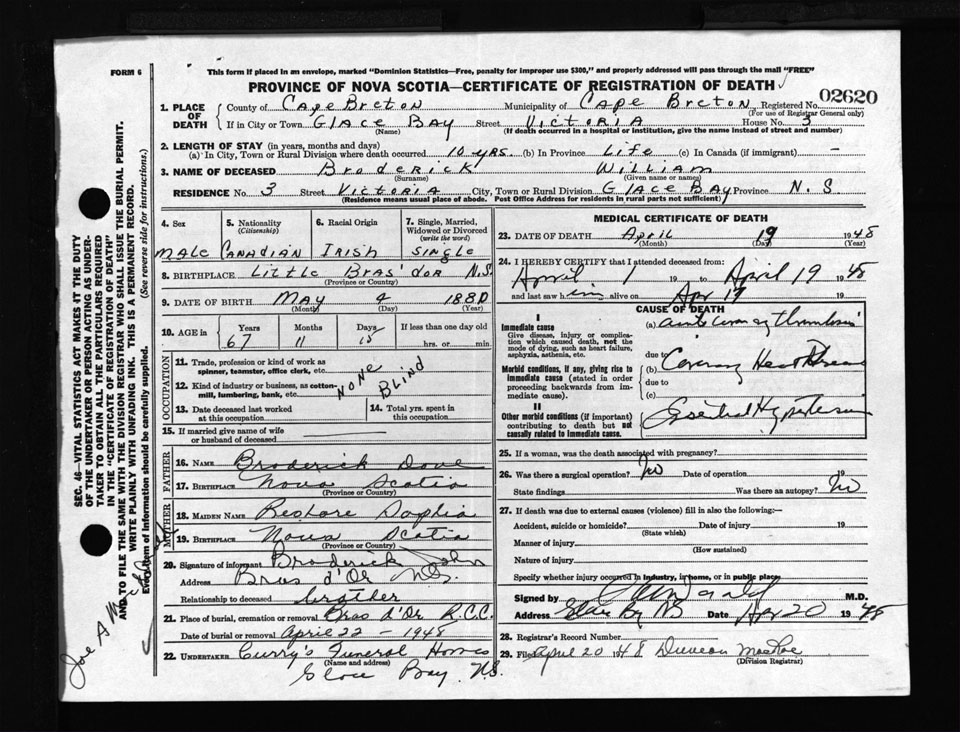 FORM 6
This form if placed in an envelope, marked "Dominion Statistics—Free, penalty for improper use $300," and properly addressed will pass through the mail "FREE"
PROVINCE OF NOVA SCOTIA—CERTIFICATE OF REGISTRATION OF DEATH
02620
1. PLACE OF DEATH County of Cape Breton Municipality of Cape Breton Registered No.
(For use of Registrar General only)
If in City or Town Glace Bay Street Victoria House No. 3
(Name) (If death occurred in a hospital or institution, give the name instead of street and number)
2. LENGTH OF STAY (in years, months and days)
(a) In City, Town or Rural Division where death occurred 10 yrs. (b) In Province Life (c) In Canada (if immigrant) —
3. NAME OF DECEASED Broderick William
(Surname) (Given name or names)
RESIDENCE No. 3 Street Victoria City, Town or Rural Division Glace Bay Province N.S
(Residence means usual place of abode. Post Office Address for residents in rural parts not sufficient)
4. Sex 5. Nationality (Citizenship) 6. Racial Origin 7. Single, Married, Widowed or Divorced (write the word)
Male Canadian Irish Single
8. BIRTHPLACE Little Bras'dor N.S.
(Province or Country)
9. DATE OF BIRTH May 4 1880
(Month) (Day) (Year)
10. AGE in Years Months Days If less than one day old
67 11 15 hrs. or min.
OCCUPATION
11. Trade, profession or kind of work as spinner, teamster, office clerk, etc.
12. Kind of industry or business, as cotton-mill, lumbering, bank, etc.
None Blind
13. Date deceased last worked at this occupation
14. Total yrs. spent in this occupation
15. If married give name of wife or husband of deceased
FATHER
16. NAME Broderick Dove
17. BIRTHPLACE Nova Scotia
(Province or Country)
MOTHER
18. MAIDEN NAME Sophia
19. BIRTHPLACE Nova Scotia
(Province or Country)
20. Signature of informant Broderick John
Address Bras d'Or N.S.
Relationship to deceased brother
21. Place of burial, cremation or removal Bras d'Or R.C.C.
Date of burial or removal April 22 - 1948
22. UNDERTAKER Curry's Funeral Homes
(Name and address)
Glace Bay, N.S.
MEDICAL CERTIFICATE OF DEATH
23. DATE OF DEATH April 19 1948
(Month) (Day) (Year)
24. I HEREBY CERTIFY that I attended deceased from:
April 1 19 to April 19 1948
and last saw him alive on Apr 19 19
CAUSE OF DEATH
I
Immediate cause
Give disease, injury or complication which caused death, not the mode of dying, such as heart failure, asphyxia, asthenia, etc.
(a) acute coronary thrombosis
due to
Morbid conditions, if any, giving rise to immediate cause (stated in order proceeding backwards from immediate cause).
(b) Coronary Heart Disease
due to
(c)
II
Other morbid conditions (if important) contributing to death but not causally related to immediate cause.
Essential Hypertension
25. If a woman, was the death associated with pregnancy?
26. Was there a surgical operation? No Date of operation 19
State findings Was there an autopsy? No
27. If death was due to external causes (violence) fill in also the following:—
Accident, suicide or homicide? Date of injury 19
(State which)
Manner of injury
(How sustained)
Nature of injury
Specify whether injury occurred in industry, in home, or in public place
Signed by M.D.
Address Glace Bay NS Date Apr 20 1948
28. Registrar's Record Number
29. Filed April 20 1948 Duncan MacRae
(Division Registrar)
SEC. 46—VITAL STATISTICS ACT MAKES IT THE DUTY
OF THE UNDERTAKER OR PERSON ACTING AS UNDERTAKER TO OBTAIN ALL THE PARTICULARS REQUIRED
IN THE "CERTIFICATE OF REGISTRATION OF DEATH"
AND TO FILE THE SAME WITH THE DIVISION REGISTRAR WHO SHALL ISSUE THE BURIAL PERMIT.
WRITE PLAINLY WITH UNFADING INK. THIS IS A PERMANENT RECORD.
Every item of Information should be carefully supplied. (See reverse side for instructions.)